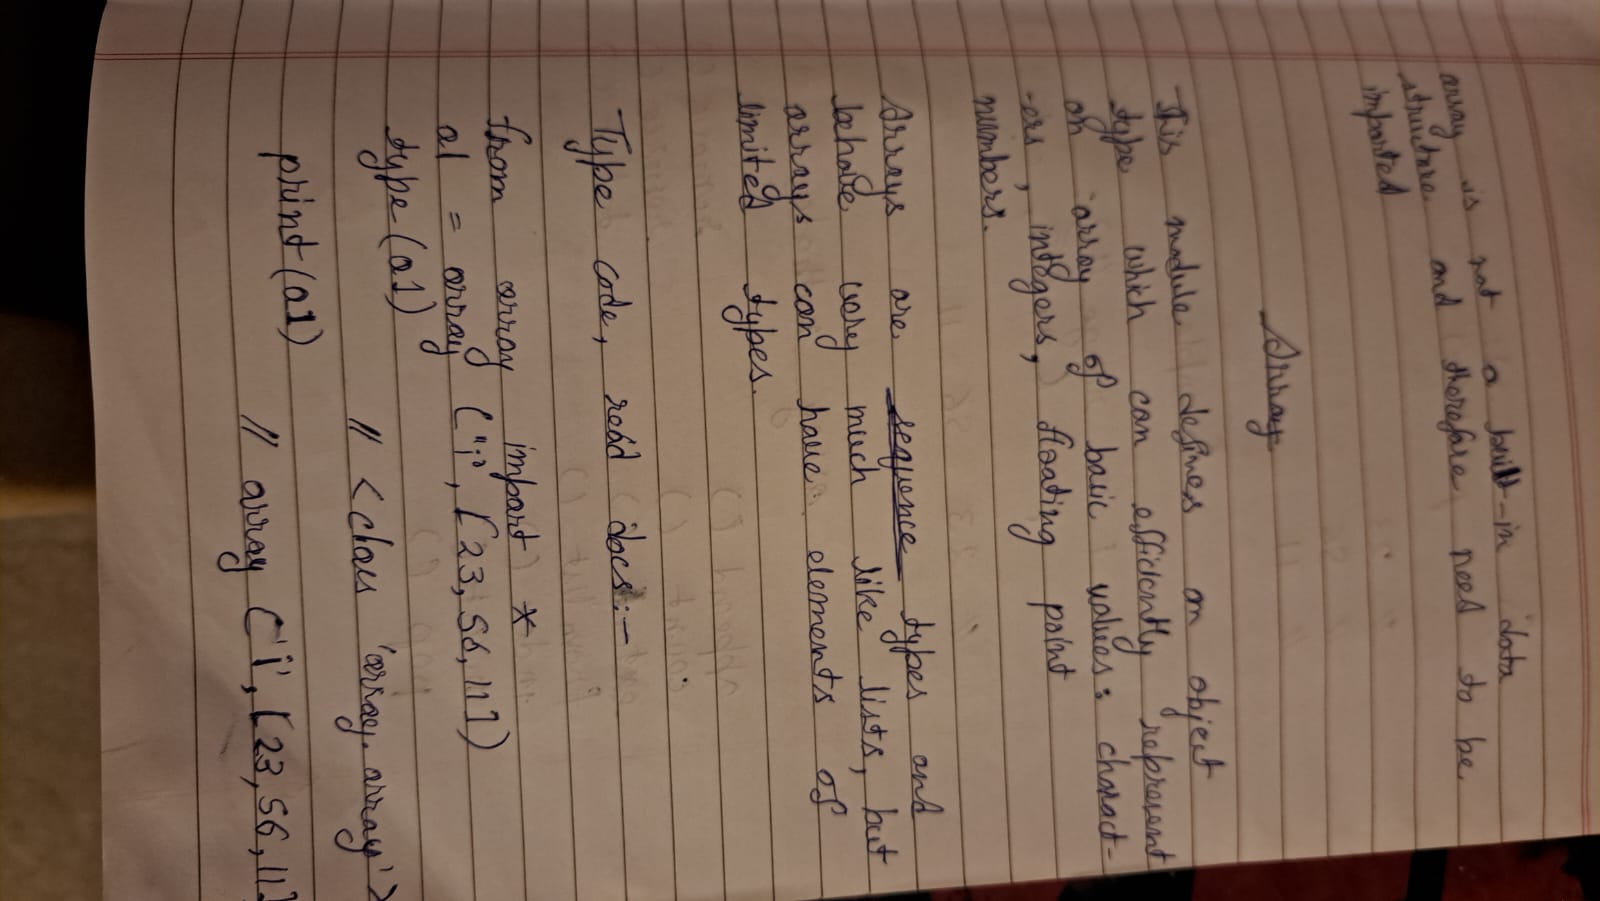 array is not a built-in data
structure and therefore need to be
imported
Array
This module defines an object
type which can efficiently represent
an array of basic values: charact-
-ers, integers, floating point
numbers.
Arrays are sequence types and
behave very much like lists, but
arrays can have elements of
limited types.
Type code, read docs:-
from array import *
a1 = array ("i", [23, 56, 11])
type(a1)
// <class 'array.array'>
print(a1)
// array ('i', [23, 56, 11]